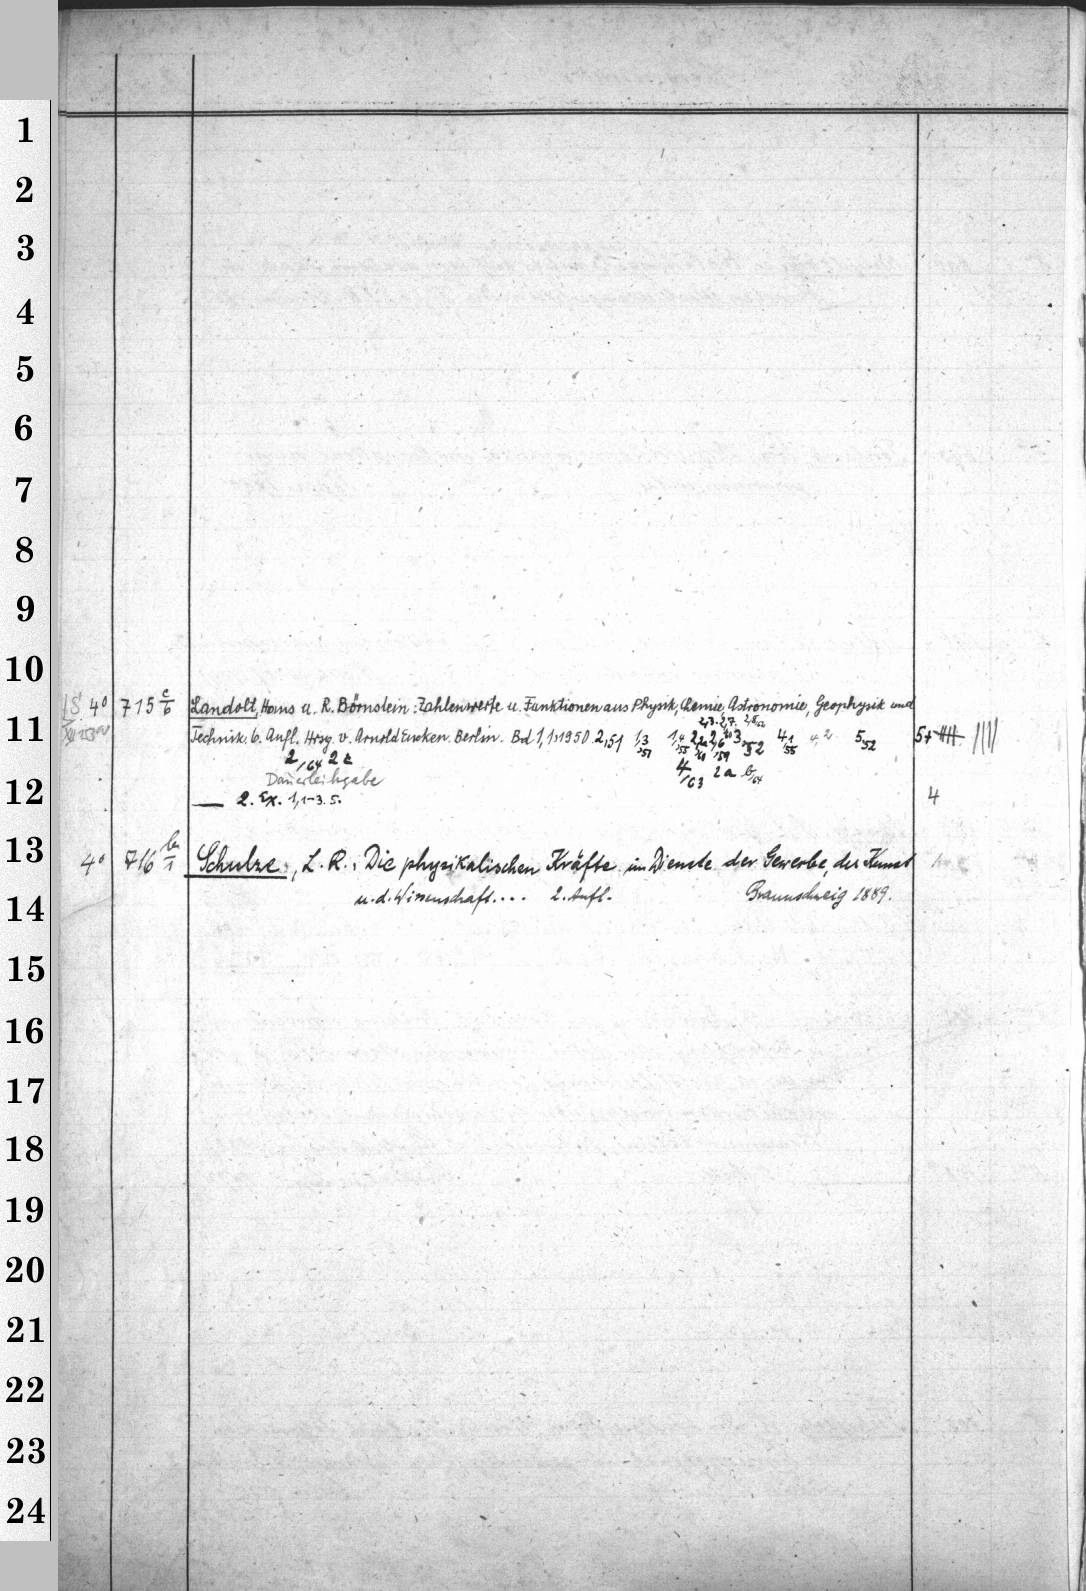 1
2
3
4
5
6
7
8
9
10
4° 715 c/6 Landolt, Hans u. R. Börnstein: Zahlenwerte u. Funktionen aus Physik, Chemie, Astronomie, Geophysik und
11
Technik. 6. Aufl. Hrsg. v. Arnold Eucken. Berlin. Bd 1,1.1950. 2,51 1,3/51 1,4/55 3/52 4,1/55 4,2 5/52 5+
2/64 2c 4/63 2a b/64
Dauerleihgabe
12
— 2. Ex. 1,1-3. 5. 4
13
4° 716 /1 Schulze, L. R.: Die physikalischen Kräfte im Dienste der Gewerbe, der Kunst
u. d. Wissenschaft.... 2. Aufl. Braunschweig 1889.
14
15
16
17
18
19
20
21
22
23
24